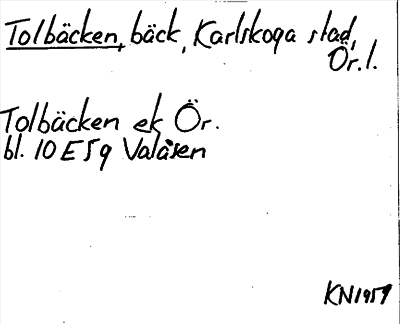 Tolbäcken, bäck, Karlskoga stad,
Ör. l.
Tolbäcken ek Ör.
bl. 10E5g Valåsen
KN1959